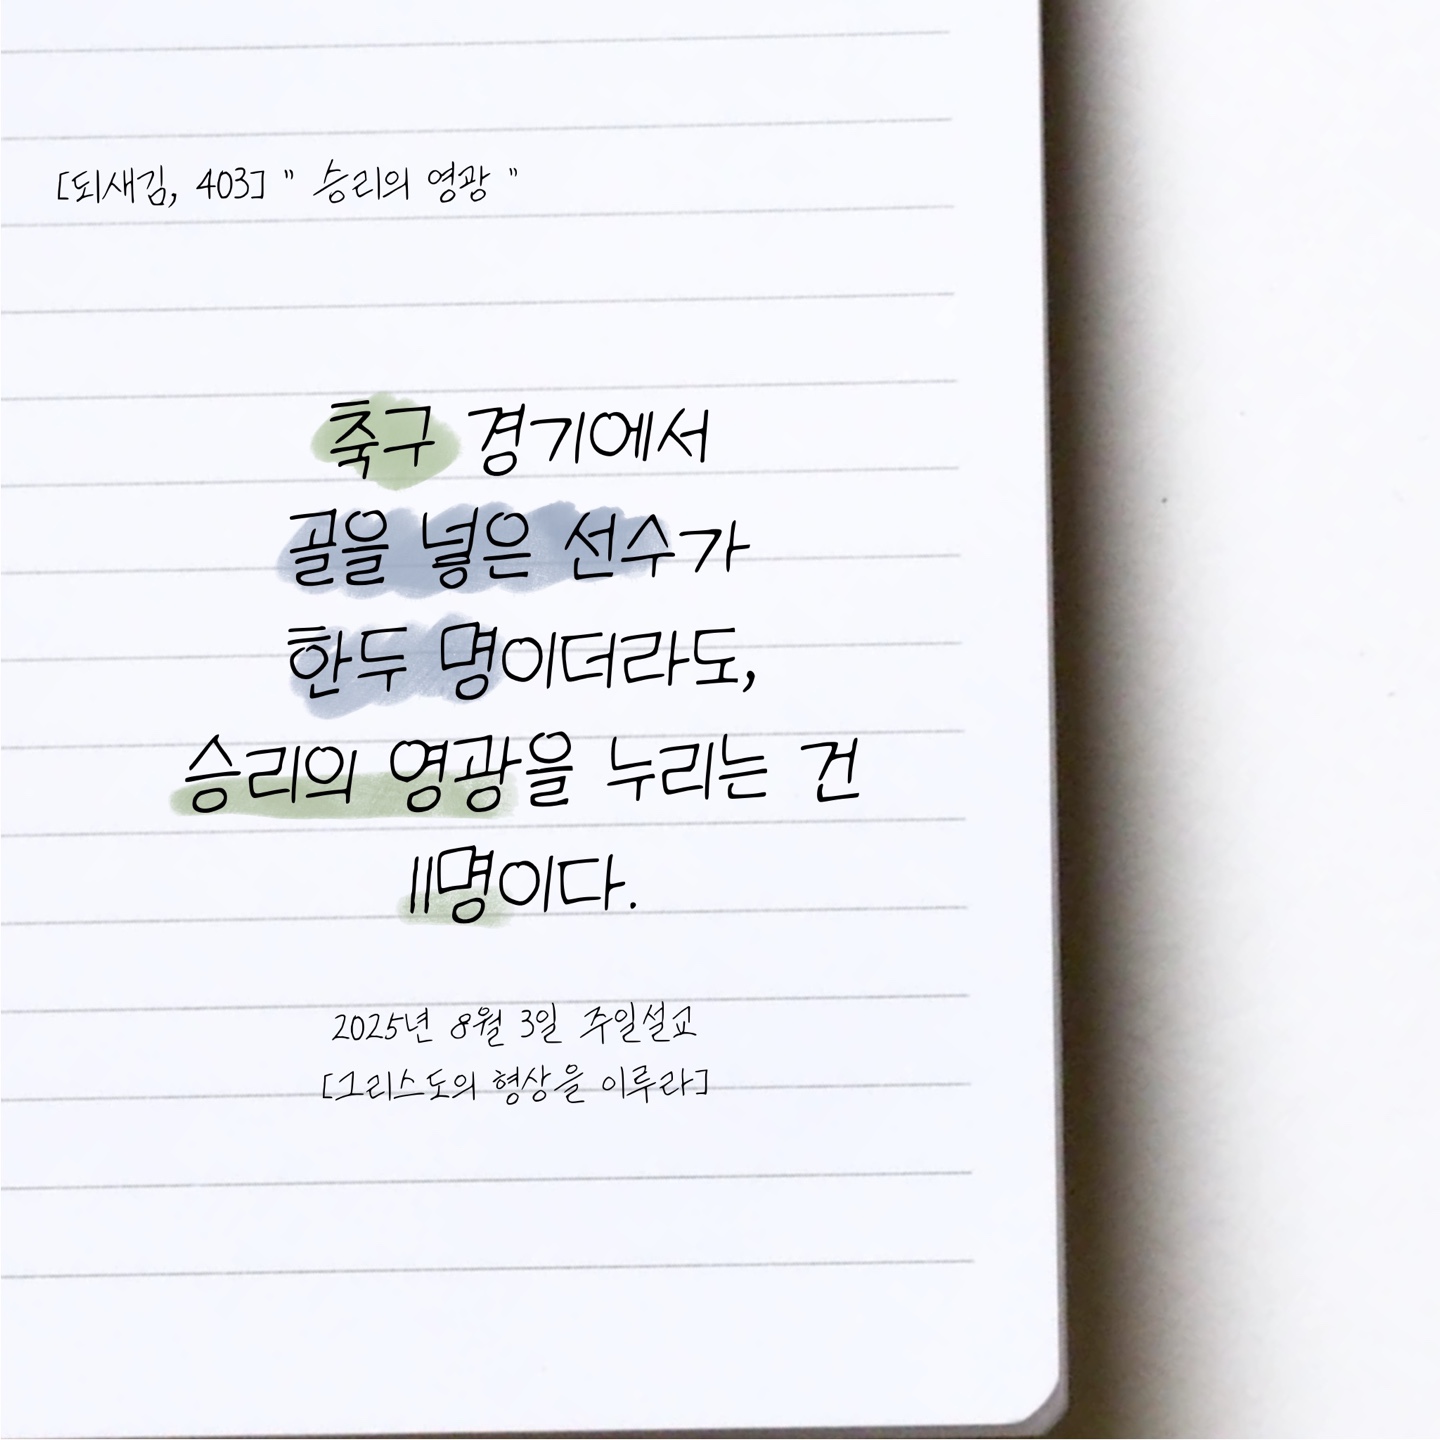 [되새김, 403] " 승리의 영광 "
축구 경기에서
골을 넣은 선수가
한두 명이더라도,
승리의 영광을 누리는 건
11명이다.
2025년 8월 3일 주일설교
[그리스도의 형상을 이루라]